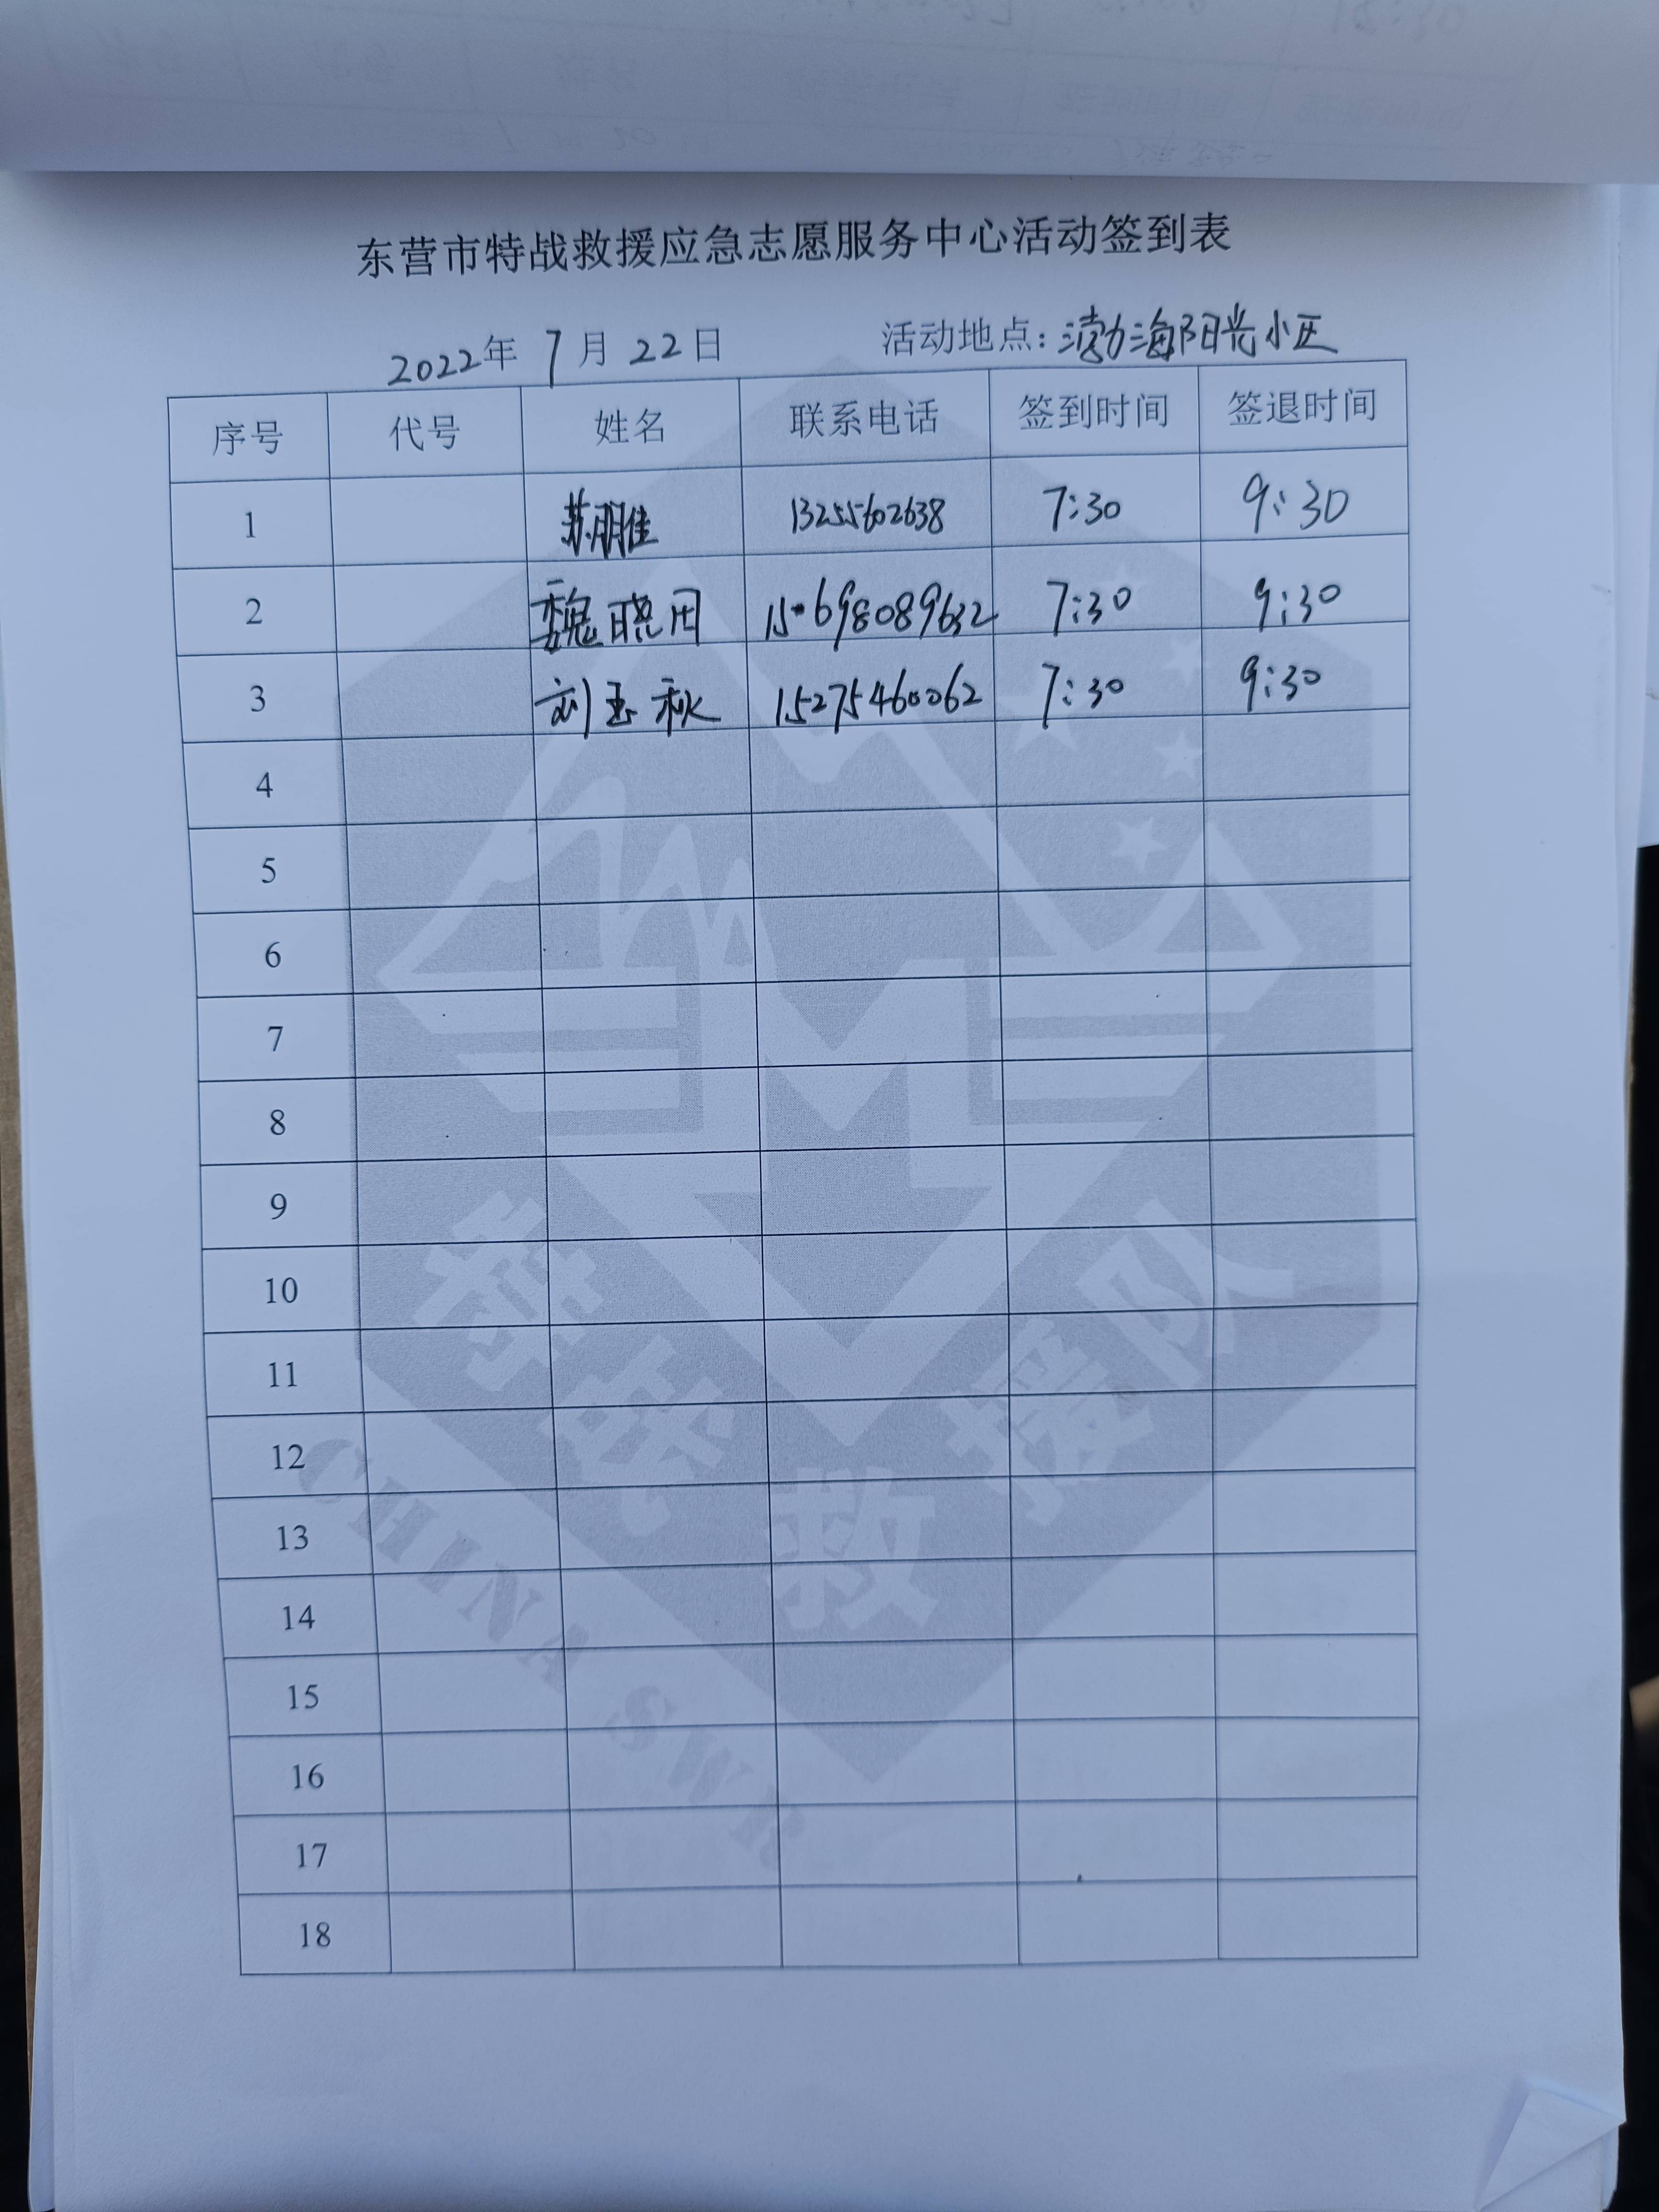 东营市特战救援应急志愿服务中心活动签到表
2022年 7月 22日 活动地点: 渤海阳光小区
序号 代号 姓名 联系电话 签到时间 签退时间
1 苏鹏佳 13255602638 7:30 9:30
2 魏晓田 15698089632 7:30 9:30
3 刘玉秋 15275460062 7:30 9:30
4
5
6
7
8
9
10
11
12
13
14
15
16
17
18
特战救援队
CHINA SWR